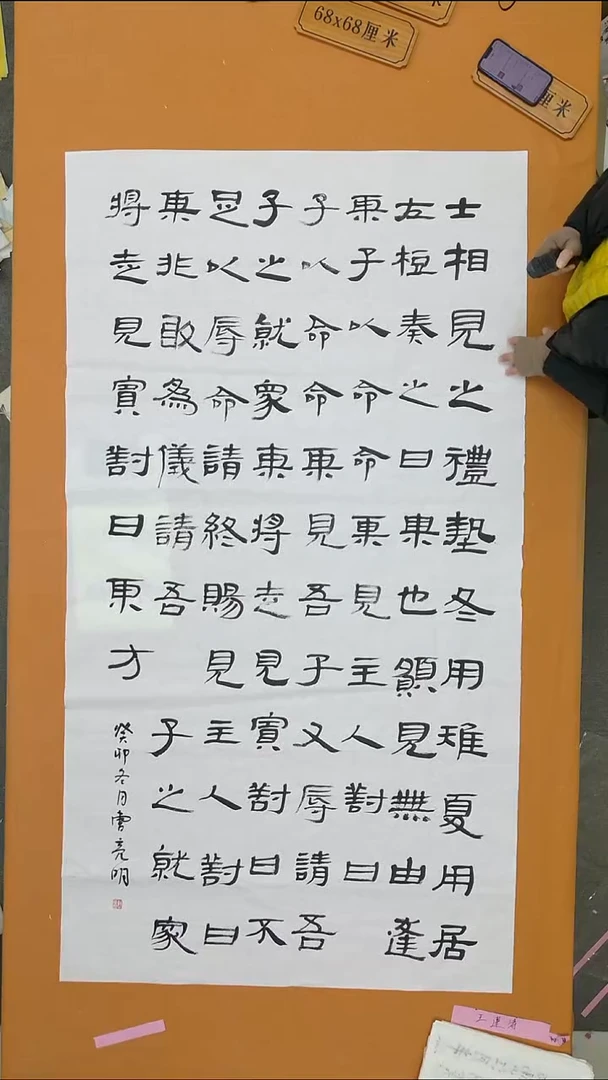 68x68厘米
厘米
士相見之禮墊冬用雉夏用居
左梪奏之曰果也願見無由達
東子以命命東見主人對曰
子以命命東見吾子又辱請吾
子之就家東將走見賓對曰不
足以辱命請終賜見主人對曰
東非敢為儀請吾子之就家
將走見賓對曰東方
癸卯冬月曹亮明